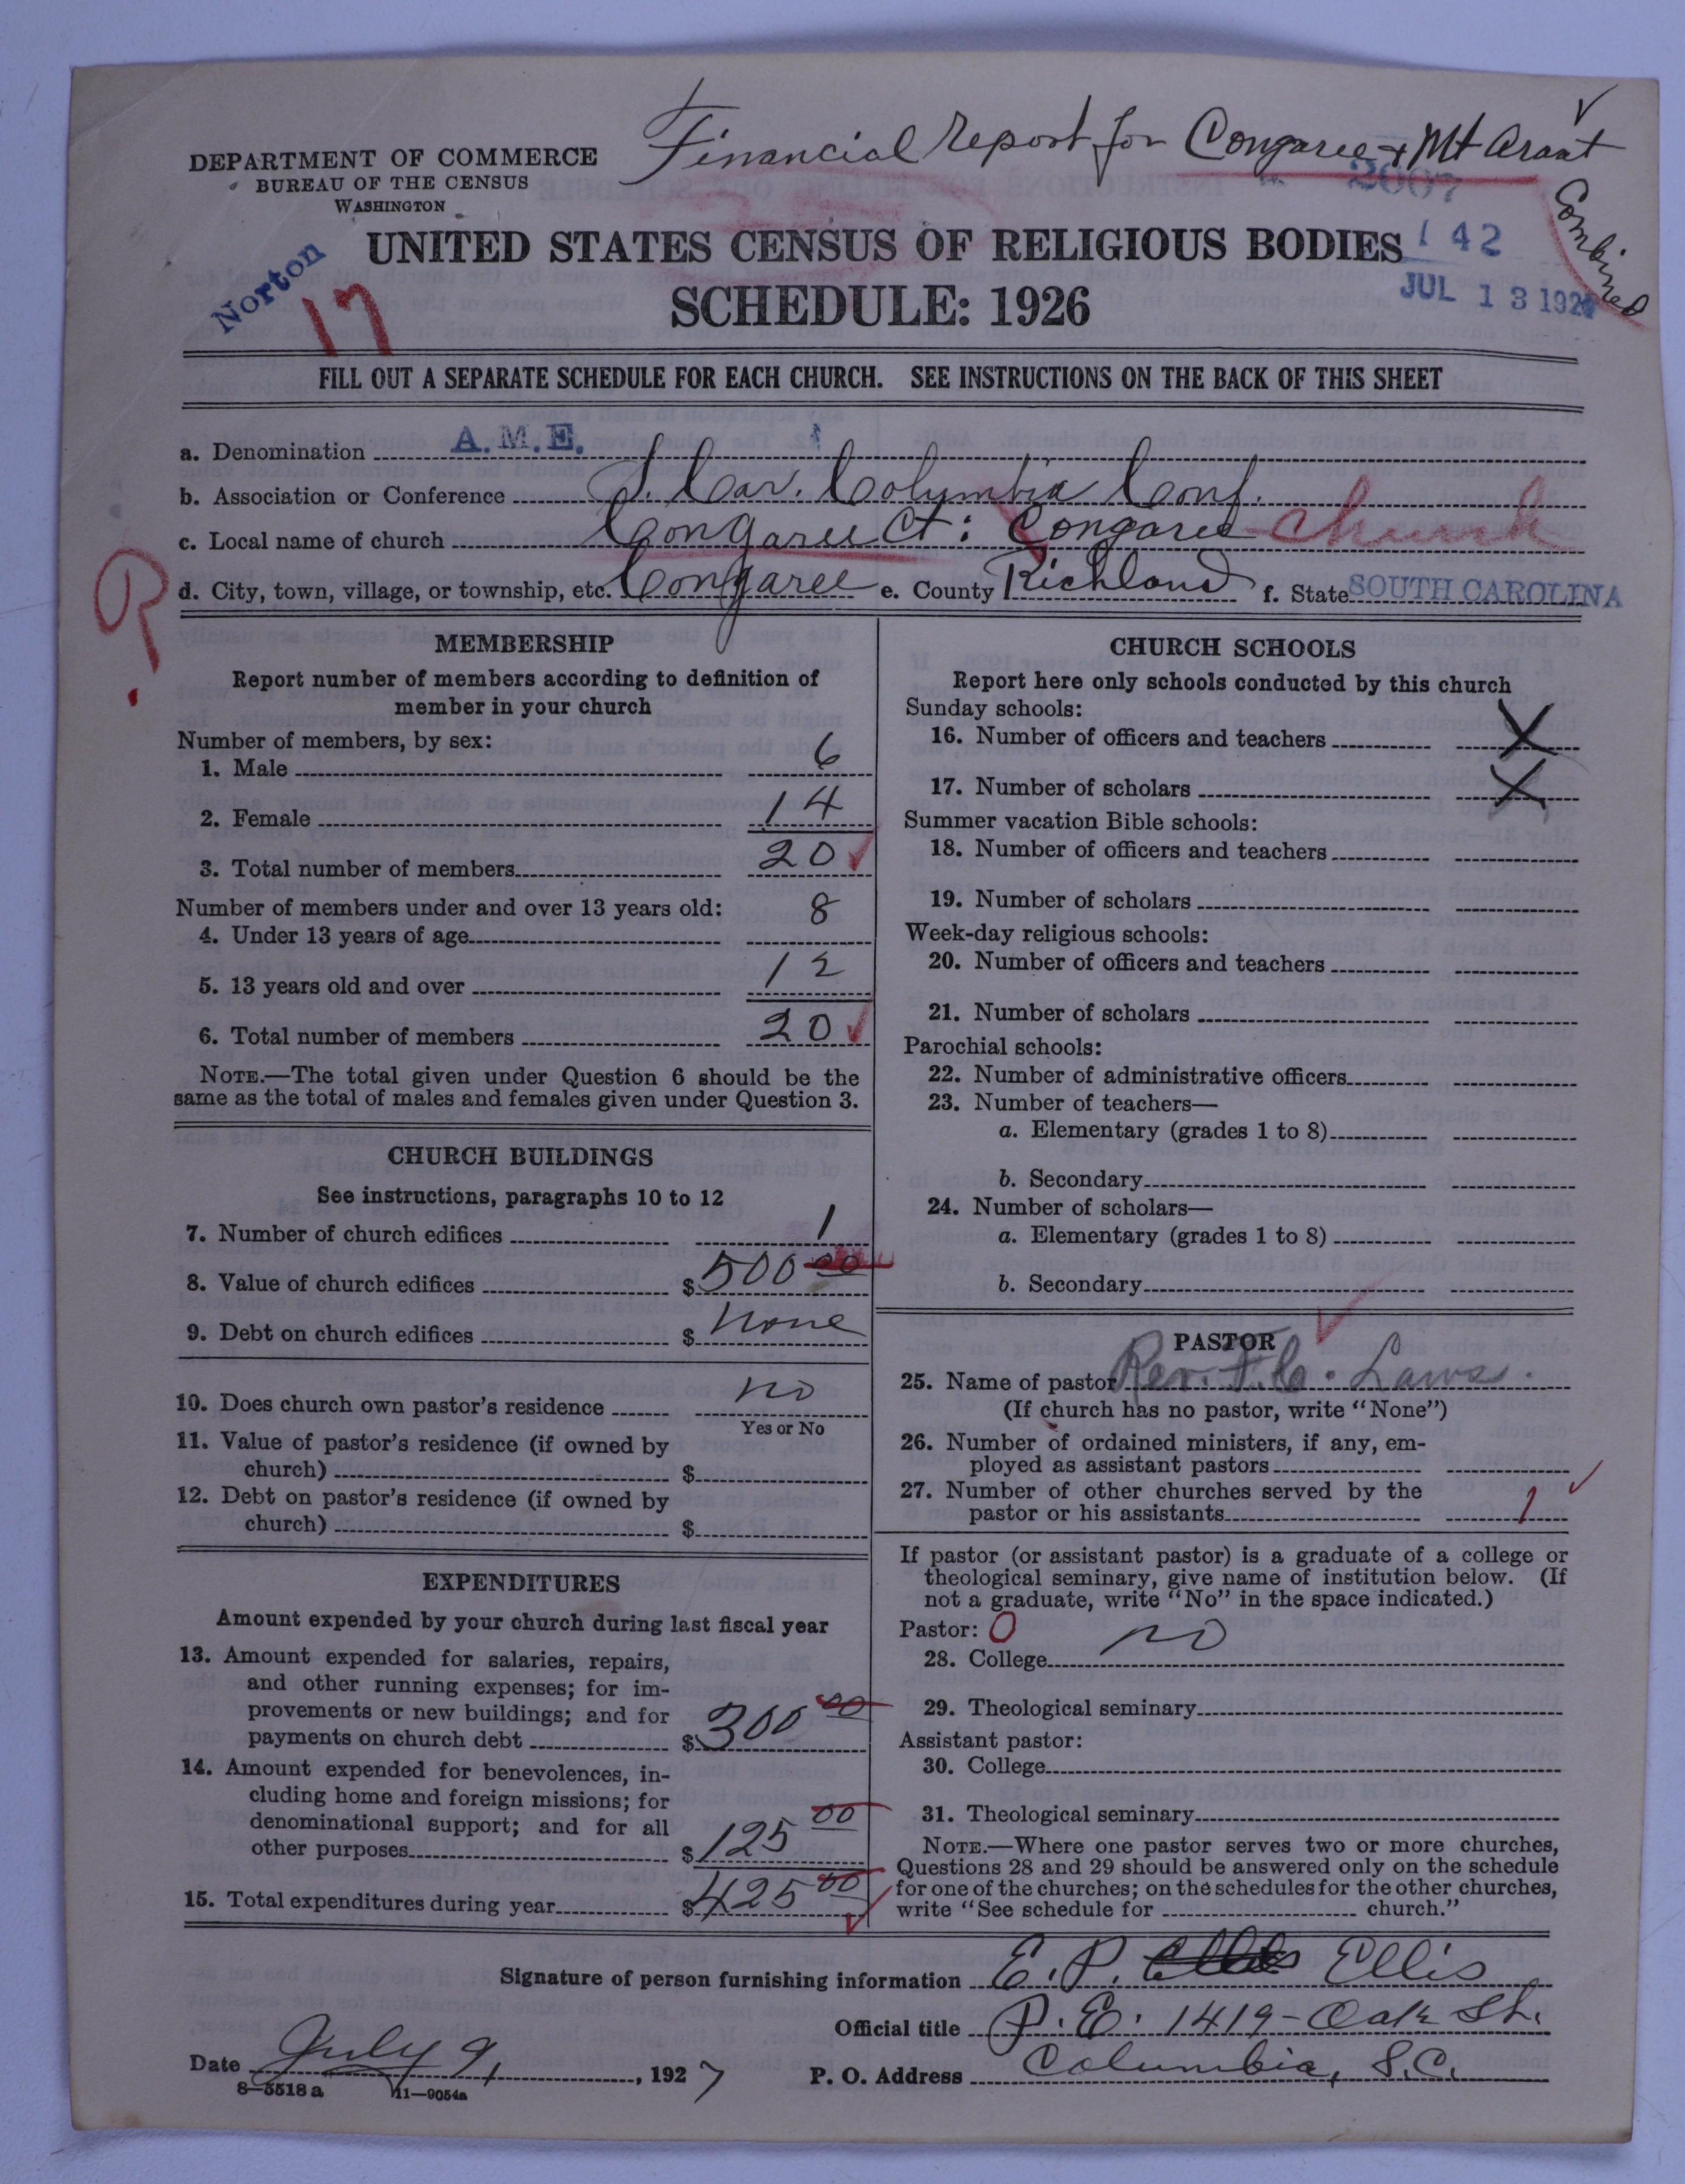 Financial Report for Congaree + Mt Arant
Combined
DEPARTMENT OF COMMERCE
BUREAU OF THE CENSUS
WASHINGTON
2007
142
JUL 13 192
Norton
17
UNITED STATES CENSUS OF RELIGIOUS BODIES
SCHEDULE: 1926
FILL OUT A SEPARATE SCHEDULE FOR EACH CHURCH. SEE INSTRUCTIONS ON THE BACK OF THIS SHEET
a. Denomination A.M.E.
b. Association or Conference S. Car. Columbia Conf.
c. Local name of church Congaree Ct: Congaree church
d. City, town, village, or township, etc. Congaree e. County Richland f. State SOUTH CAROLINA
R.
MEMBERSHIP
Report number of members according to definition of
member in your church
Number of members, by sex:
1. Male 6
2. Female 14
3. Total number of members 20
Number of members under and over 13 years old:
4. Under 13 years of age 8
5. 13 years old and over 12
6. Total number of members 20
NOTE.—The total given under Question 6 should be the
same as the total of males and females given under Question 3.
CHURCH BUILDINGS
See instructions, paragraphs 10 to 12
7. Number of church edifices 1
8. Value of church edifices $500 00
9. Debt on church edifices $ None
10. Does church own pastor's residence no
Yes or No
11. Value of pastor's residence (if owned by
church) $
12. Debt on pastor's residence (if owned by
church) $
EXPENDITURES
Amount expended by your church during last fiscal year
13. Amount expended for salaries, repairs,
and other running expenses; for im-
provements or new buildings; and for
payments on church debt $300 00
14. Amount expended for benevolences, in-
cluding home and foreign missions; for
denominational support; and for all
other purposes $125 00
15. Total expenditures during year $425 00
CHURCH SCHOOLS
Report here only schools conducted by this church
Sunday schools:
16. Number of officers and teachers X
17. Number of scholars X
Summer vacation Bible schools:
18. Number of officers and teachers
19. Number of scholars
Week-day religious schools:
20. Number of officers and teachers
21. Number of scholars
Parochial schools:
22. Number of administrative officers
23. Number of teachers—
a. Elementary (grades 1 to 8)
b. Secondary
24. Number of scholars—
a. Elementary (grades 1 to 8)
b. Secondary
PASTOR
25. Name of pastor Rev. F. C. Laws.
(If church has no pastor, write "None")
26. Number of ordained ministers, if any, em-
ployed as assistant pastors
27. Number of other churches served by the
pastor or his assistants 1
If pastor (or assistant pastor) is a graduate of a college or
theological seminary, give name of institution below. (If
not a graduate, write "No" in the space indicated.)
Pastor: 0
28. College no
29. Theological seminary
Assistant pastor:
30. College
31. Theological seminary
NOTE.—Where one pastor serves two or more churches,
Questions 28 and 29 should be answered only on the schedule
for one of the churches; on the schedules for the other churches,
write "See schedule for church."
Signature of person furnishing information E. P. Ellis
Official title P. E. 1419- Oak St.
Date July 9, 1927 P. O. Address Columbia, S.C.
8—5518 a 11—9054a